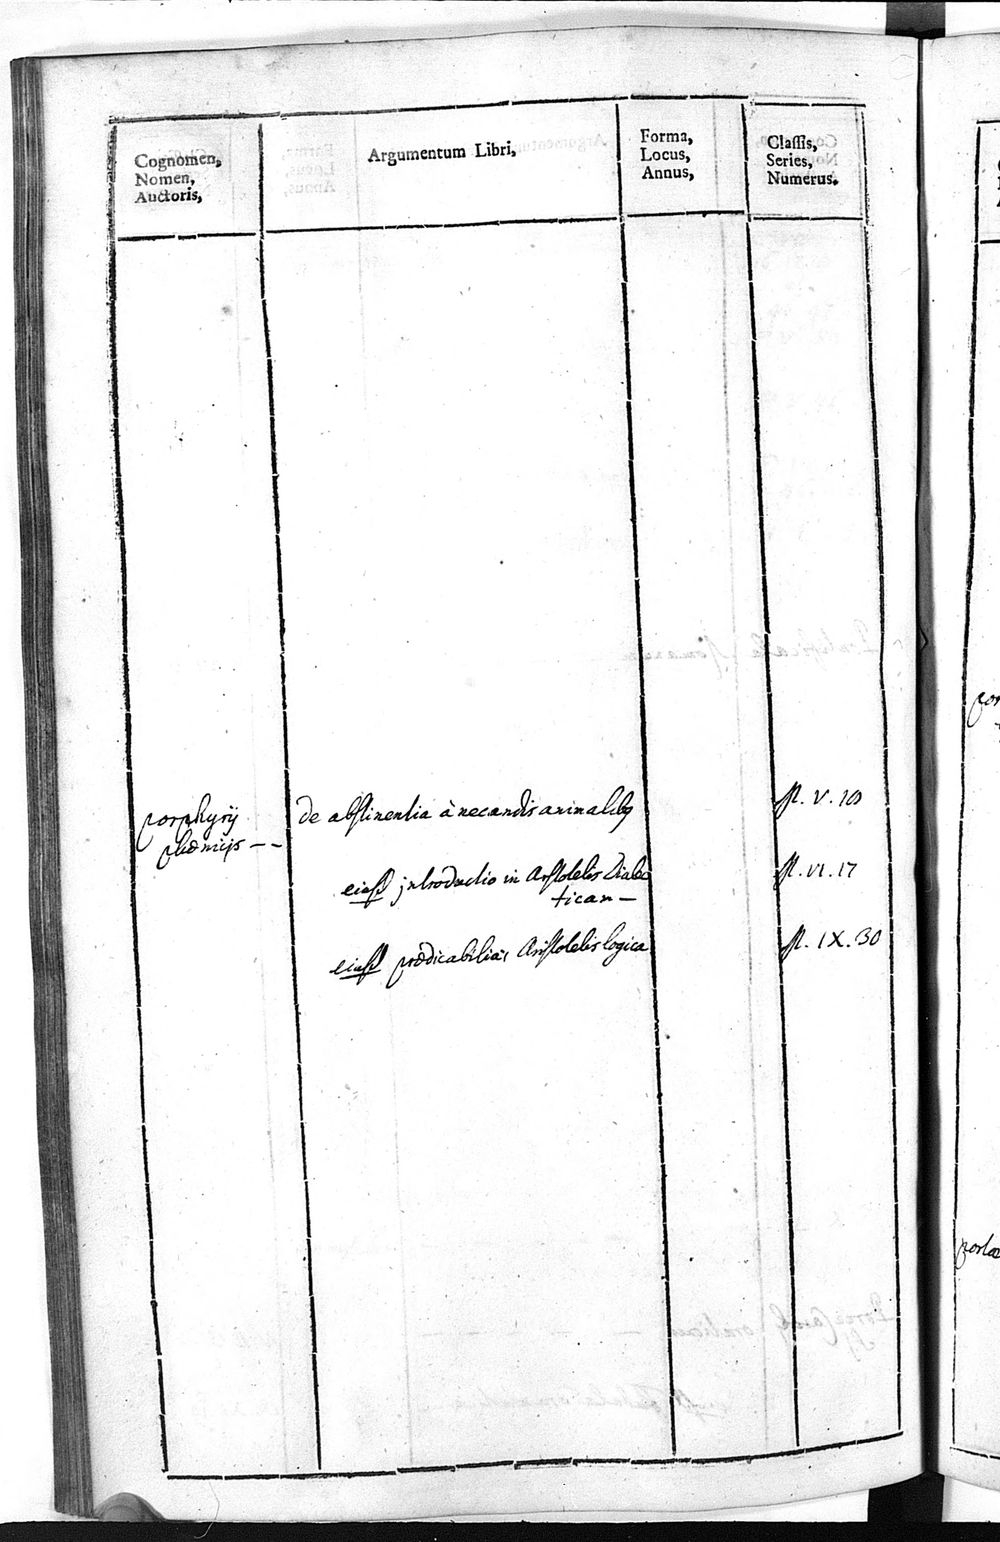 Cognomen,
Nomen,
Auctoris,
Argumentum Libri,
Forma,
Locus,
Annus,
Classis,
Series,
Numerus.
porphyrij
phœnicis - -
de abstinentia à necandis animalibq
st. V. 10
eiusd introductio in Aristotelis Dialec
tican —
st. VI. 17
eiusd prædicabilia, Aristotelis logica
st. IX. 30